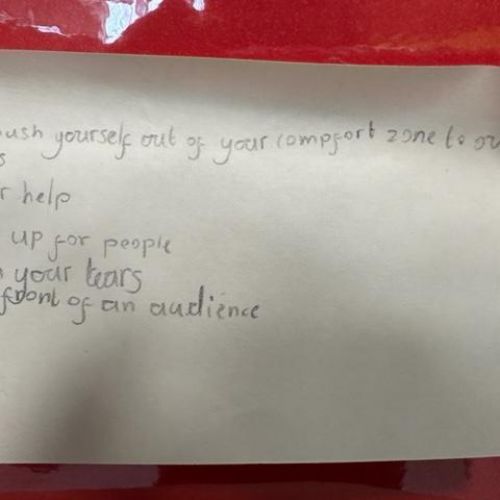 ush yourself out of your compfort zone to ov
s
r help
up for people
your tears
front of an audience